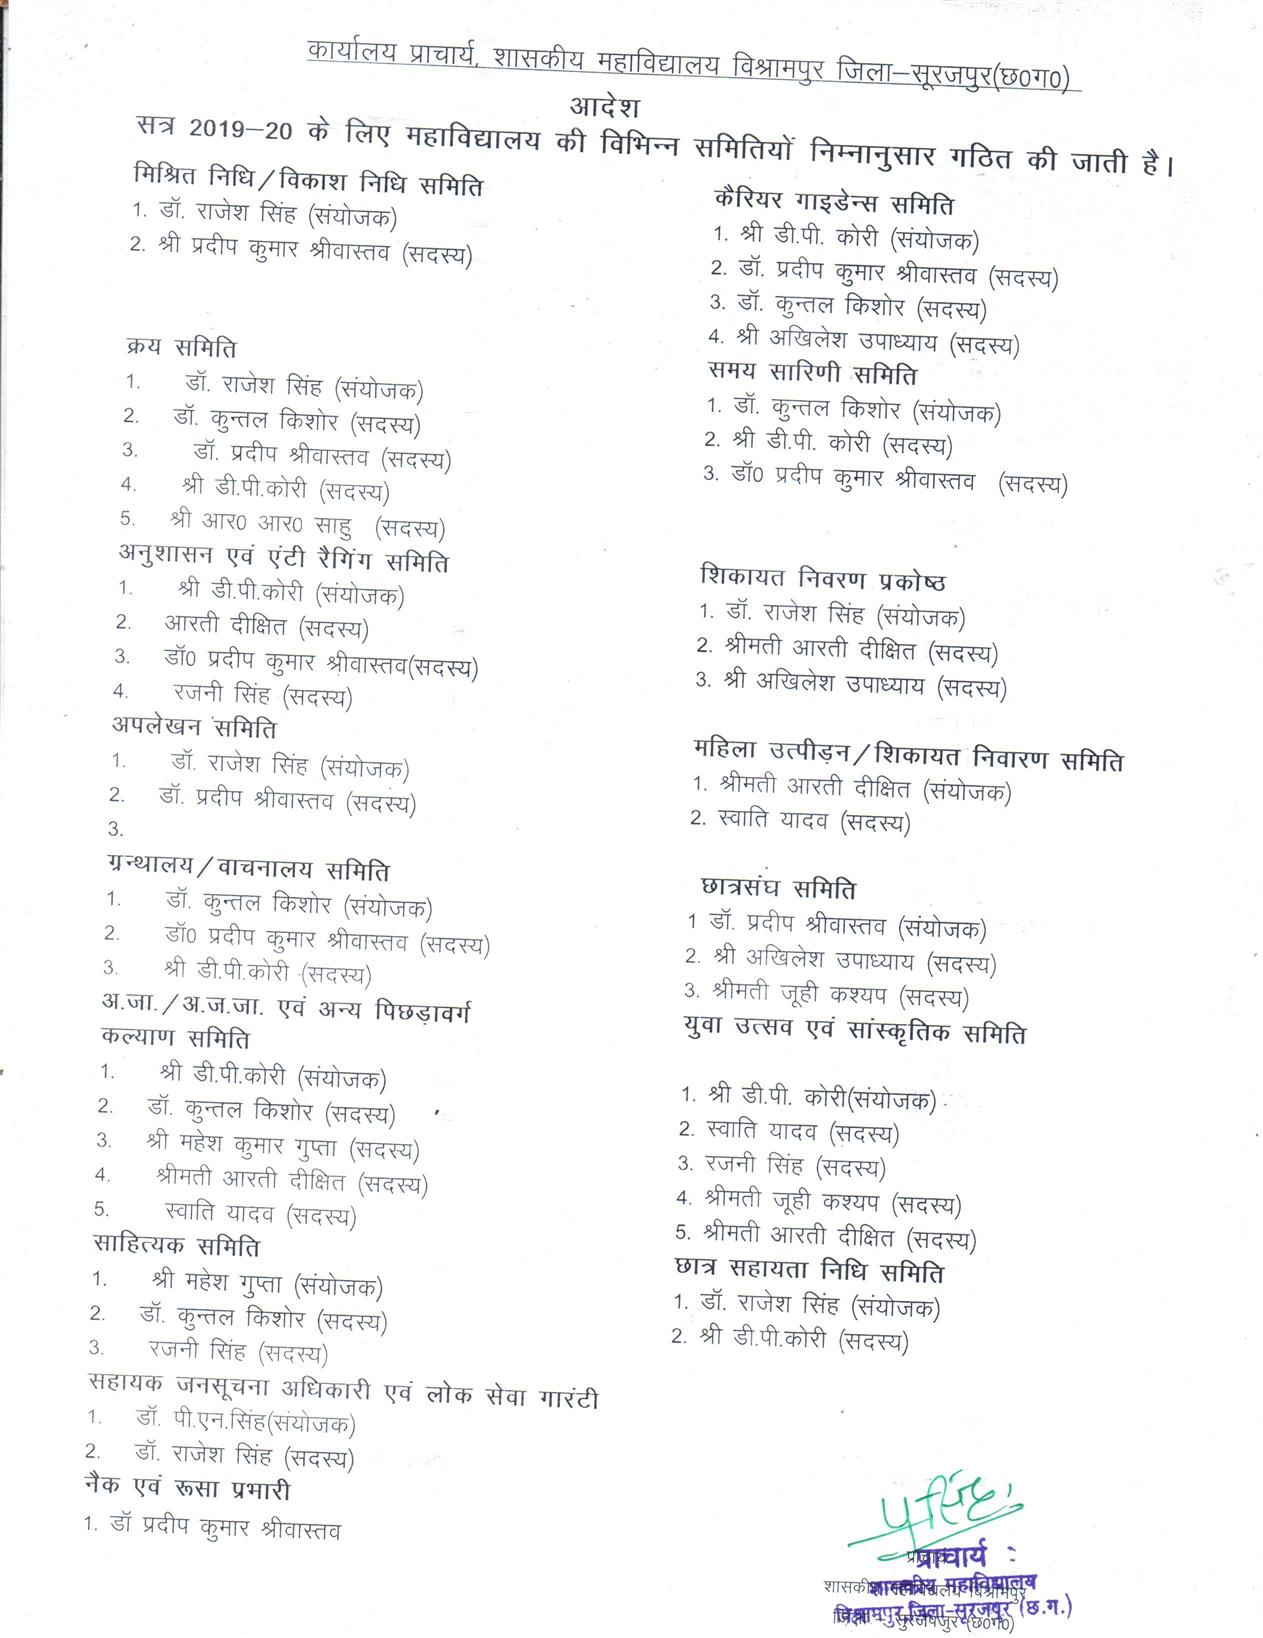 कार्यालय प्राचार्य, शासकीय महाविद्यालय विश्रामपुर जिला–सूरजपुर(छ0ग0)
आदेश
सत्र 2019–20 के लिए महाविद्यालय की विभिन्न समितियों निम्नानुसार गठित की जाती है।
मिश्रित निधि/विकाश निधि समिति
1. डॉ. राजेश सिंह (संयोजक)
2. श्री प्रदीप कुमार श्रीवास्तव (सदस्य)
क्रय समिति
1. डॉ. राजेश सिंह (संयोजक)
2. डॉ. कुन्तल किशोर (सदस्य)
3. डॉ. प्रदीप श्रीवास्तव (सदस्य)
4. श्री डी.पी.कोरी (सदस्य)
5. श्री आर0 आर0 साहु (सदस्य)
अनुशासन एवं एंटी रैगिंग समिति
1. श्री डी.पी.कोरी (संयोजक)
2. आरती दीक्षित (सदस्य)
3. डॉ0 प्रदीप कुमार श्रीवास्तव(सदस्य)
4. रजनी सिंह (सदस्य)
अपलेखन समिति
1. डॉ. राजेश सिंह (संयोजक)
2. डॉ. प्रदीप श्रीवास्तव (सदस्य)
3.
ग्रन्थालय/वाचनालय समिति
1. डॉ. कुन्तल किशोर (संयोजक)
2. डॉ0 प्रदीप कुमार श्रीवास्तव (सदस्य)
3. श्री डी.पी.कोरी (सदस्य)
अ.जा./अ.ज.जा. एवं अन्य पिछड़ावर्ग
कल्याण समिति
1. श्री डी.पी.कोरी (संयोजक)
2. डॉ. कुन्तल किशोर (सदस्य)
3. श्री महेश कुमार गुप्ता (सदस्य)
4. श्रीमती आरती दीक्षित (सदस्य)
5. स्वाति यादव (सदस्य)
साहित्यक समिति
1. श्री महेश गुप्ता (संयोजक)
2. डॉ. कुन्तल किशोर (सदस्य)
3. रजनी सिंह (सदस्य)
सहायक जनसूचना अधिकारी एवं लोक सेवा गारंटी
1. डॉ. पी.एन.सिंह(संयोजक)
2. डॉ. राजेश सिंह (सदस्य)
नैक एवं रूसा प्रभारी
1. डॉ प्रदीप कुमार श्रीवास्तव
कैरियर गाइडेन्स समिति
1. श्री डी.पी. कोरी (संयोजक)
2. डॉ. प्रदीप कुमार श्रीवास्तव (सदस्य)
3. डॉ. कुन्तल किशोर (सदस्य)
4. श्री अखिलेश उपाध्याय (सदस्य)
समय सारिणी समिति
1. डॉ. कुन्तल किशोर (संयोजक)
2. श्री डी.पी. कोरी (सदस्य)
3. डॉ0 प्रदीप कुमार श्रीवास्तव (सदस्य)
शिकायत निवरण प्रकोष्ठ
1. डॉ. राजेश सिंह (संयोजक)
2. श्रीमती आरती दीक्षित (सदस्य)
3. श्री अखिलेश उपाध्याय (सदस्य)
महिला उत्पीड़न/शिकायत निवारण समिति
1. श्रीमती आरती दीक्षित (संयोजक)
2. स्वाति यादव (सदस्य)
छात्रसंघ समिति
1 डॉ. प्रदीप श्रीवास्तव (संयोजक)
2. श्री अखिलेश उपाध्याय (सदस्य)
3. श्रीमती जूही कश्यप (सदस्य)
युवा उत्सव एवं सांस्कृतिक समिति
1. श्री डी.पी. कोरी(संयोजक)
2. स्वाति यादव (सदस्य)
3. रजनी सिंह (सदस्य)
4. श्रीमती जूही कश्यप (सदस्य)
5. श्रीमती आरती दीक्षित (सदस्य)
छात्र सहायता निधि समिति
1. डॉ. राजेश सिंह (संयोजक)
2. श्री डी.पी.कोरी (सदस्य)
प्राचार्य
शासकीय महाविद्यालय
विश्रामपुर जिला–सूरजपुर (छ.ग.)